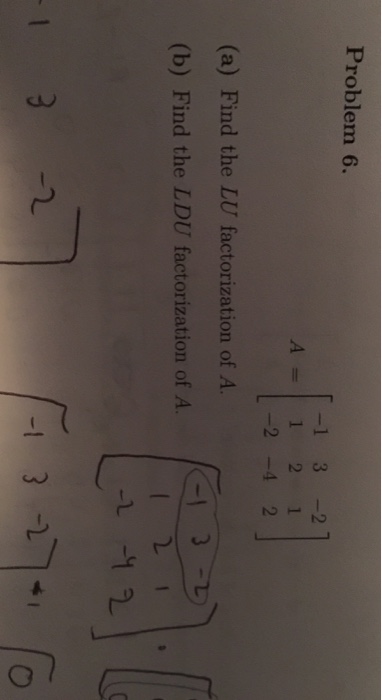 Problem 6.
A = [ -1 3 -2
1 2 1
-2 -4 2 ]
(a) Find the LU factorization of A.
(b) Find the LDU factorization of A.
[ -1 3 -2
1 2 1
-2 -4 2 ] .
-1 3 -2 ]
[ -1 3 -2 ] *1 [ 0